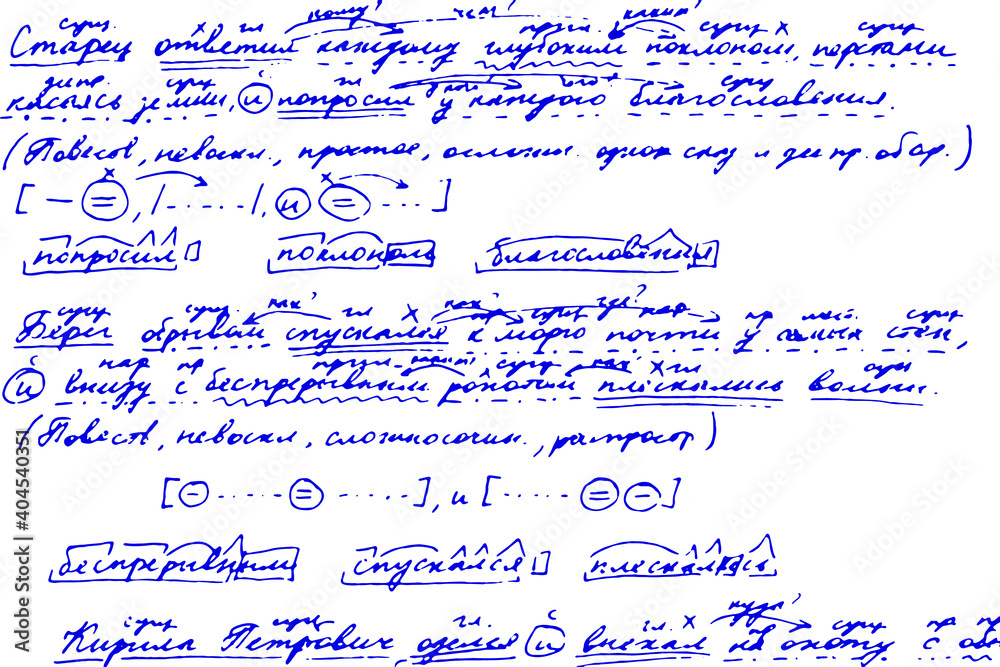 сущ х гл кому? чем? прил каким? сущ х сущ
Старец ответил каждому глубоким поклоном, перстами
деепр. сущ с гл сущ
касаясь земли, и попросил у каждого благословения.
(Повеств, невоскл., простое, осложн. однор сказ и деепр. обор.)
[ — = , /-·-·-·/, и = ··· ]
попросил поклоном благословения
сущ сущ как? гл х как? сущ где? нар пр мест. сущ
Берег обрывом спускался к морю почти у самых стен,
с нар пр прил каким? сущ х гл сущ
и внизу с беспрерывным ропотом плескались волны.
(Повеств, невоскл, сложносочин., распростр)
[ — ····· = ····· ], и [ ····· = — ]
беспрерывным спускался плескались
сущ сущ гл. с гл. х куда? сущ пр
Кирила Петрович оделся и выехал на охоту с
Adobe Stock | #404540351
Adobe Stock